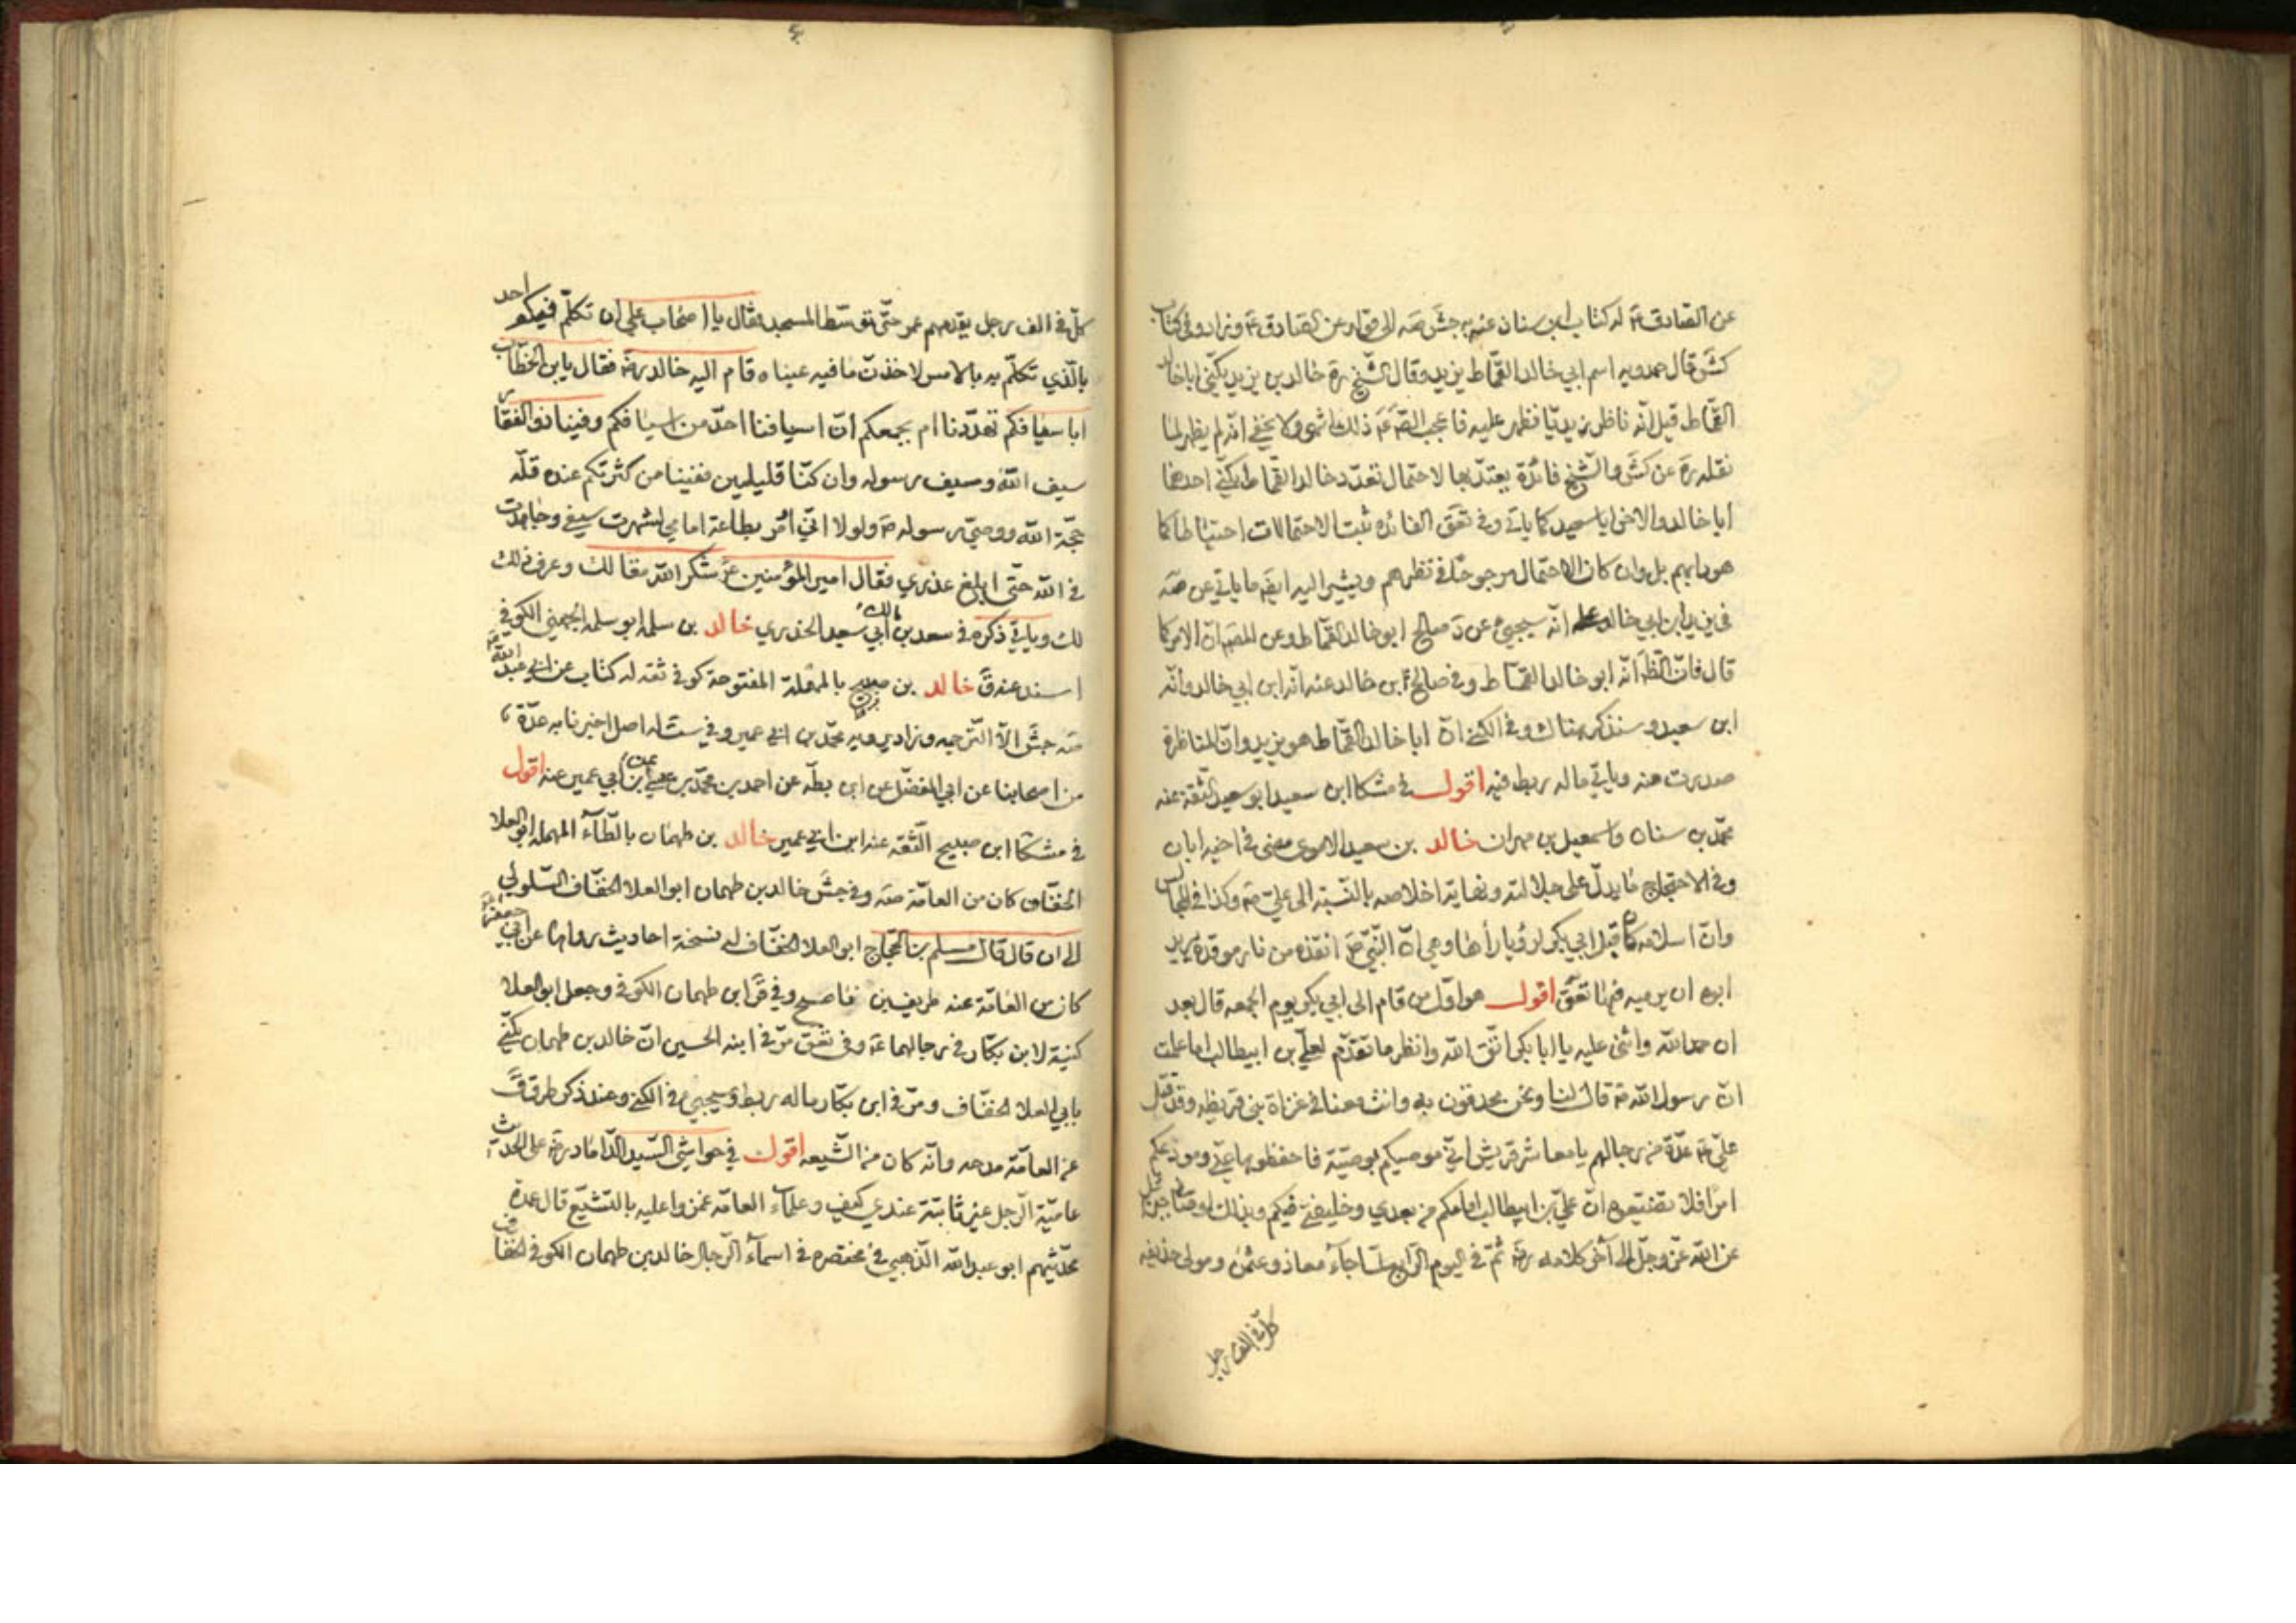 عن الصّادق ع له كتاب ابن سنان عنه به جش صه الى قوله وعن الصّادق ع وزاد وفي كتاب
كش قال حمدويه اسم ابي خالد القمّاط يزيد وقال الشّيخ ره خالد بن يزيد يكنّى ابا خالد
القمّاط قيل انّه ناظر زيديّا فظهر عليه فاعجب الصّ ع ذلك انتهى ولا يخفى انّه لم يظهر لما
نقله ره عن كش والشّيخ فائدة يعتدّ بها لاحتمال تعدّد خالد القمّاط يكنّى احدهما
ابا خالد والاخر ابا سعيد كما ياتي وفي تعق الفائدة ثبت الاحتمالات احتياطا كما
هو دابهم بل وان كان الاحتمال مرجوحا في نظرهم ويشير اليه ايضا ما ياتي عن صه
في يزيد ابن ابي خالد انّه سيجيء عن د صالح ابو خالد القمّاط وعن المصّ ان الامر كما
قال فانّ الظّ انّه ابو خالد القمّاط وفي صالح بن خالد عنه انّه ابن ابي خالد وانّه
ابن سعيد وسنذكر هناك وفي الكنى انّ ابا خالد القمّاط هو يزيد وانّ المناظرة
صدرت منه وياتي ماله ربط فيه اقول في مشكا ابن سعيد ابو سعيد الثّقة عنه
محمّد بن سنان واسمعيل بن مهران خالد بن سعيد الاموى مضى في اخيه ابان
وفي الاحتجاج ما يدلّ على جلالته ونهاية اخلاصه بالنّسبة الى عليّ ع وكذا في المجالس
وانّ اسلامه كان قبل ابي بكر لرؤيا راها وهي انّ النّبيّ ص انقذه من نار موقدة يريد
ابوه ان يرميه فيها تعق اقول هو اوّل من قام الى ابي بكر يوم الجمعه قال بعد
ان حمد الله واثنى عليه يا ابا بكر اتّق الله وانظر ما تقدّم لعليّ بن ابيطالب اما علمت
انّ رسول الله ص قال لنا ونحن محدقون به وانت معنا في غزاة بني قريظه وقد قتل
عليّ ع عدّة من رجالهم يا معاشر قريش انّي موصيكم بوصيّة فاحفظوها عنّي ومودعكم
امرا فلا تضيّعوه انّ عليّ بن ابيطالب امامكم من بعدي وخليفتي فيكم وبذلك اوصاني جبرئيل
عن الله عزّ وجلّ الى آخر كلامه رض ثمّ في اليوم الرّابع لمّا جآء معاذ وعثمن ومولى حذيفه
كلّ في الف رجل
كلّ في الف رجل يقدمهم عمر حتّى توسّط المسجد فقال يا اصحاب علي ان تكلّم فيكم احد
بالّذي تكلّم به بالامس لاخذت ما فيه عيناه قام اليه خالد رض فقال يابن الخطّاب
ابا سيافكم تهدّدنا ام بجمعكم انّ اسيافنا احدّ من اسيافكم وفينا ذو الفقار
سيف الله وسيف رسوله وان كنّا قليلين ففينا من كثرتكم عنده قلّه
حجّة الله ووصيّ رسوله ص ولولا انّي اُمر بطاعة امامي لشهرت سيفي وجاهدت
في الله حتّى ابلغ عذري فقال امير المؤمنين ع شكر الله مقالك وعرف ذلك
لك وياتي ذكره في سعد بن مالك ابي سعيد الخدري خالد بن سلمه ابو سلمه الجهني الكوفي
اسند عنه ق خالد بن صبيح بالمهملة المفتوحة كوفي ثقه له كتاب عن ابي عبد الله ع
صه جش الّا التّرجمه وزاد يرويه محمّد بن ابي عمير وفي ست له اصل اخبرنا به عدّة
من اصحابنا عن ابي المفضّل عن ابن بطّه عن احمد بن محمّد بن عيسى عن ابن ابي عمير عنه اقول
في مشكا ابن صبيح الثّقه عنه ابن ابي عمير خالد بن طهمان بالطّآء المهمله ابو العلا
الخفّاف كان من العامّة صه وفي جش خالد بن طهمان ابو العلا الخفّاف السّلولي
الى ان قال قال مسلم بن الحجّاج ابو العلا الخفّاف له نسخة احاديث رواها عن ابي جعفر ع
كان من العامّة عنه ظريف بن ناصح وفي قر ابن طهمان الكوفي وجعل ابو العلا
كنية لابن بكّار في رجالهما ع وفي تعق مرّ في ابنه الحسين انّ خالد بن طهمان يكنّى
بابي العلا الخفّاف ومرّ في ابن بكّار ماله ربط وسيجيء في الكنى وعند ذكر طرق ق
عن العامّة مدحه وانّه كان من الشّيعه اقول في حواشي السّيد الدّاماد ره على الحديث
عاميّة الرّجل غير ثابتة عندي كيف وعلمآء العامّه غمزوا عليه بالتّشيّع قال عمدة
محدّثيهم ابو عبد الله الذّهبي في مختصره في اسمآء الرّجال خالد بن طهمان الكوفي الخفاف